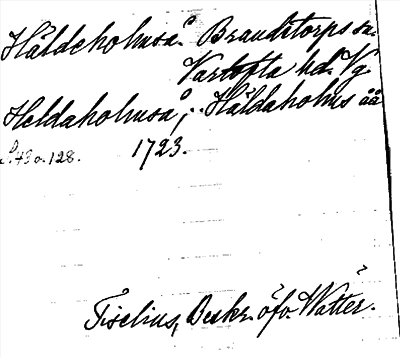 Häldeholmså. Brandstorps sn.
Vartofta hd. Vg.
Heldaholmså, Häldaholms åå
S. 43 o. 128. 1723.
Tiselius, Beskr. öfv. Wätter.